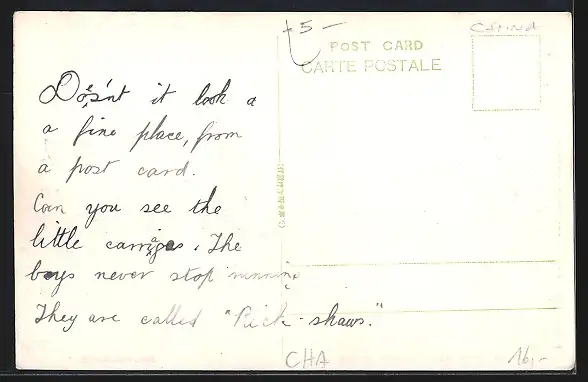 China
-5-
POST CARD
CARTE POSTALE
Doesn't it look a
a fine place, from
a post card.
Can you see the
little carriages. The
boys never stop running
They are called "Rick-shaws."
CHA
16,-